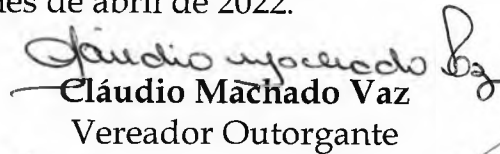 mês de abril de 2022.
Cláudio Machado Vaz
Cláudio Machado Vaz
Vereador Outorgante